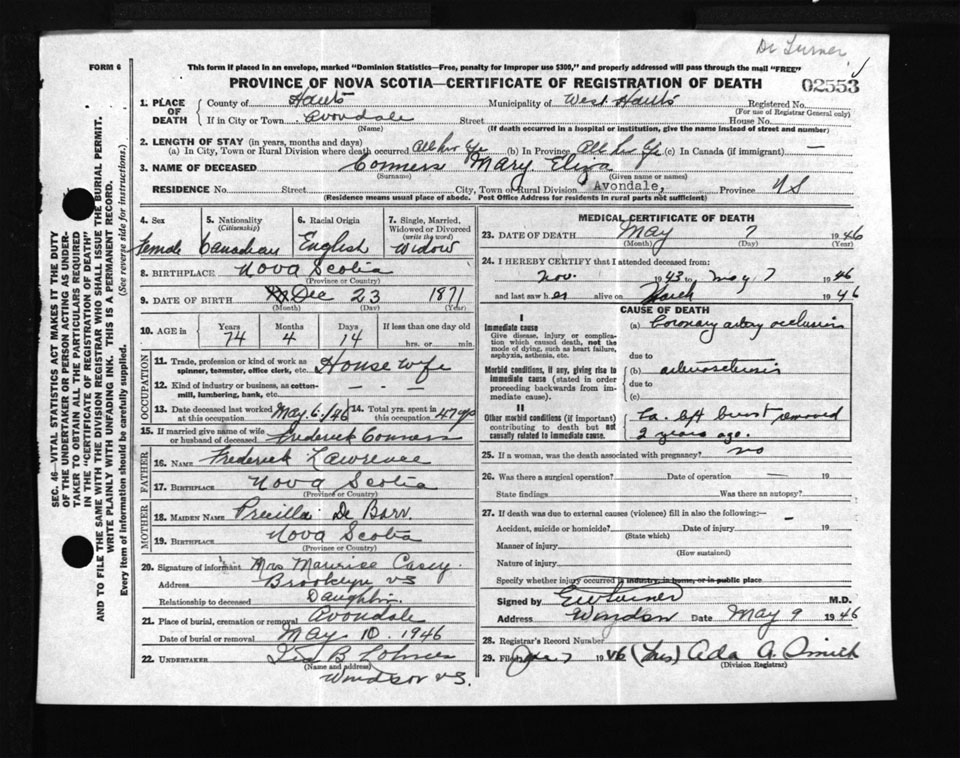 Dr Turner
FORM 6
This form if placed in an envelope, marked "Dominion Statistics—Free, penalty for improper use $300," and properly addressed will pass through the mail "FREE"
PROVINCE OF NOVA SCOTIA—CERTIFICATE OF REGISTRATION OF DEATH
02553
SEC. 46—VITAL STATISTICS ACT MAKES IT THE DUTY
OF THE UNDERTAKER OR PERSON ACTING AS UNDER-
TAKER TO OBTAIN ALL THE PARTICULARS REQUIRED
IN THE "CERTIFICATE OF REGISTRATION OF DEATH"
AND TO FILE THE SAME WITH THE DIVISION REGISTRAR WHO SHALL ISSUE THE BURIAL PERMIT.
WRITE PLAINLY WITH UNFADING INK. THIS IS A PERMANENT RECORD.
Every item of information should be carefully supplied. (See reverse side for instructions.)
1. PLACE OF DEATH
County of Hants Municipality of West Hants Registered No.
(For use of Registrar General only)
If in City or Town Avondale Street House No.
(Name) (If death occurred in a hospital or institution, give the name instead of street and number)
2. LENGTH OF STAY (in years, months and days)
(a) In City, Town or Rural Division where death occurred All her life (b) In Province All her life (c) In Canada (if immigrant) —
3. NAME OF DECEASED Conners Mary Eliza
(Surname) (Given name or names)
RESIDENCE No. Street City, Town or Rural Division Avondale, Province N S
(Residence means usual place of abode. Post Office Address for residents in rural parts not sufficient)
4. Sex Female
5. Nationality (Citizenship) Canadian
6. Racial Origin English
7. Single, Married, Widowed or Divorced (write the word) Widow
8. BIRTHPLACE Nova Scotia
(Province or Country)
9. DATE OF BIRTH Dec 23 1871
(Month) (Day) (Year)
10. AGE in Years 74 Months 4 Days 14 If less than one day old
hrs. or min.
OCCUPATION
11. Trade, profession or kind of work as
spinner, teamster, office clerk, etc. House wife
12. Kind of industry or business, as cotton-
mill, lumbering, bank, etc. — — —
13. Date deceased last worked at this occupation May 6/46 14. Total yrs. spent in this occupation 47 yrs
15. If married give name of wife
or husband of deceased Frederick Conners
FATHER
16. NAME Frederick Lawrence
17. BIRTHPLACE Nova Scotia
(Province or Country)
MOTHER
18. MAIDEN NAME Precilla De
19. BIRTHPLACE Nova Scotia
(Province or Country)
20. Signature of informant Mrs Maurice Casey
Address Brooklyn NS
Relationship to deceased Daughter
21. Place of burial, cremation or removal Avondale
Date of burial or removal May 10, 1946
22. UNDERTAKER B
(Name and address)
Windsor NS.
MEDICAL CERTIFICATE OF DEATH
23. DATE OF DEATH May 7 1946
(Month) (Day) (Year)
24. I HEREBY CERTIFY that I attended deceased from:
Nov. 1943 to May 7 1946
and last saw her alive on March 1946
CAUSE OF DEATH
I
Immediate cause
Give disease, injury or complica-
tion which caused death, not the
mode of dying, such as heart failure,
asphyxia, asthenia, etc.
(a) Coronary artery occlusion
due to
Morbid conditions, if any, giving rise to
immediate cause (stated in order
proceeding backwards from im-
mediate cause).
(b) arteriosclerosis
due to
(c)
II
Other morbid conditions (if important)
contributing to death but not
causally related to immediate cause.
Ca. left breast removed
2 years ago.
25. If a woman, was the death associated with pregnancy? no
26. Was there a surgical operation? Date of operation — 19
State findings Was there an autopsy?
27. If death was due to external causes (violence) fill in also the following:—
Accident, suicide or homicide? Date of injury 19
(State which)
Manner of injury
(How sustained)
Nature of injury
Specify whether injury occurred in industry, in home, or in public place
Signed by E W Turner M.D.
Address Windsor Date May 9 1946
28. Registrar's Record Number
29. Filed 7 1946 (Mrs) Ada A. Smith
(Division Registrar)